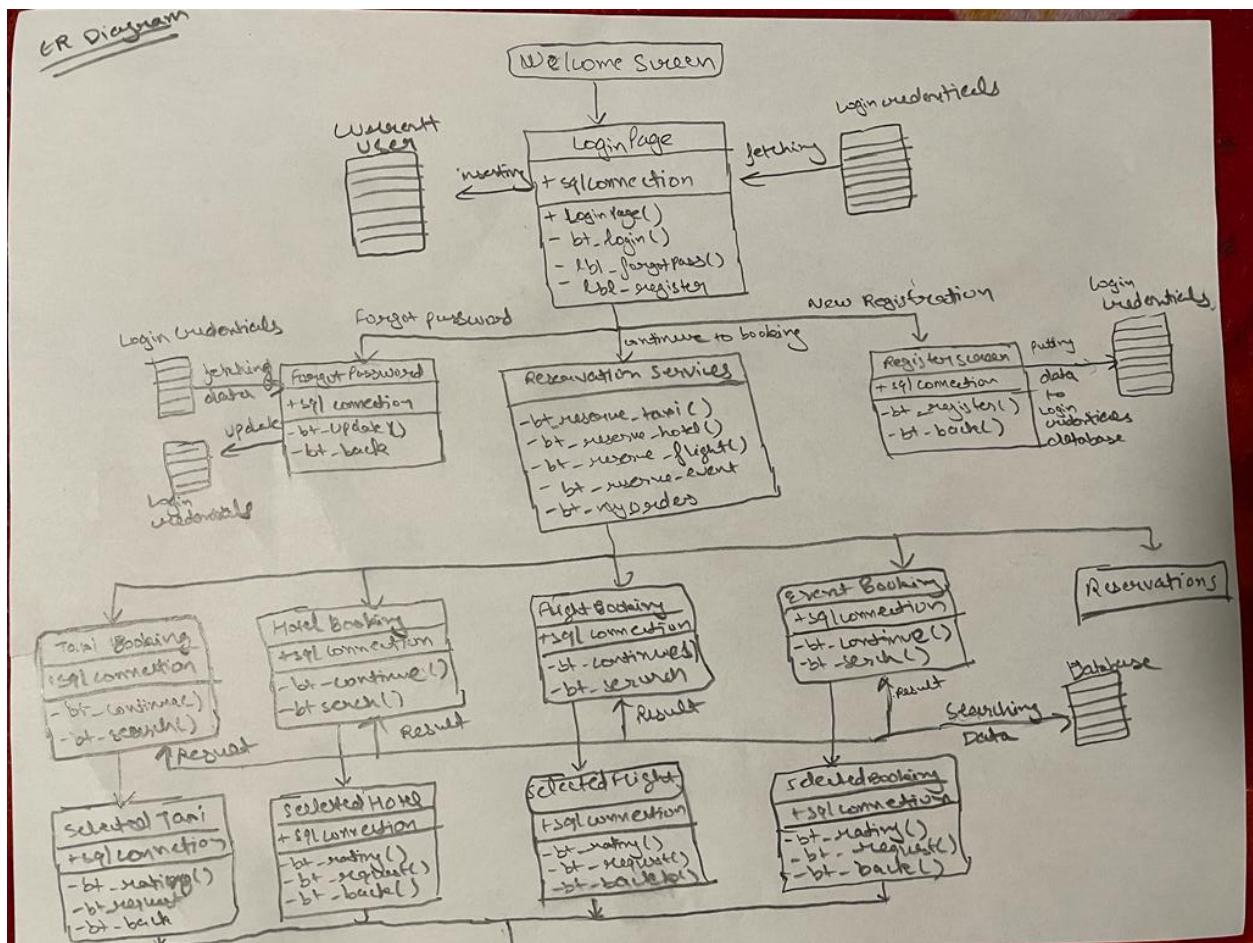 ER Diagram
Welcome Screen
Login credenticals
Currentt
User
inserting
LoginPage
+ sqlconnection
+ LoginPage()
- bt_login()
- lbl_forgotPass()
- lbl_register
fetching
Forgot password
continue to booking
New Registration
Login
credenticals
Login Credenticals
fetching
data
ForgotPassword
+sql connection
-bt_update()
-bt_back
update
Login
credenticals
Reservation Services
-bt_reserve_taxi()
-bt_reserve_hotel()
-bt_reserve_flight()
- bt_reserve_event
-bt_myordes
Register screen
+sql connection
-bt_register()
-bt_back()
putting
data
to
Login
credenticals
database
Taxi Booking
+sql connection
-bt_continue()
-bt_search()
Result
Hotel Booking
+sql connection
-bt_continue()
-bt serch()
Result
FlightBooking
+sql connection
-bt_continues)
-bt_serurch
Result
Event Booking
+sql connection
-bt_continue()
-bt_serch()
Result
Reservations
Searching
Data
Database
Selected Taxi
+sql connection
-bt_rating()
-bt_request
-bt_back
SelectedHotel
+ sql connection
-bt_rating()
-bt_request()
-bt_back()
SelectedFlight
+sql connection
-bt_rating()
-bt_request()
-bt_back()
SelectedBooking
+sql connection
-bt_rating()
-bt_request()
-bt_back()